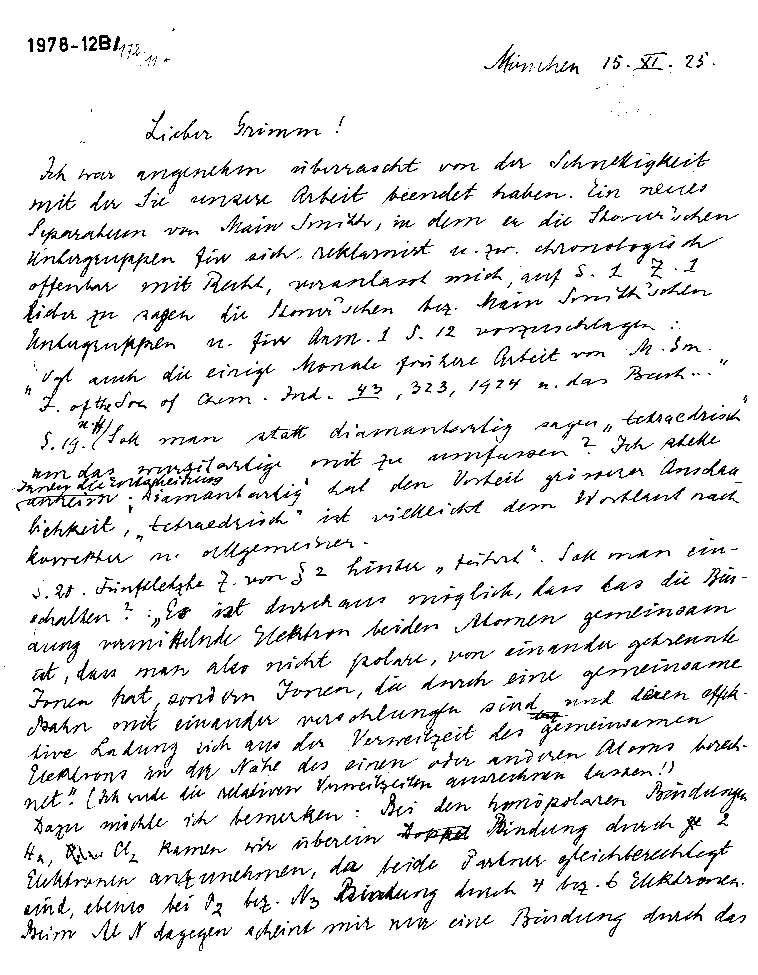 1978-12B/172,11.
München 15. XI. 25.
Lieber Grimm!
Ich war angenehm überrascht von der Schnelligkeit
mit der Sie unsere Arbeit beendet haben. Ein neues
Separatum von Main Smith, in dem er die Stoner'schen
Untergruppen für sich reklamirt u. zw. chronologisch
offenbar mit Recht, veranlasst mich, auf S. 1 Z. 1
lieber zu sagen die Stoner'schen bez. Main Smith'schen
Untergruppen u. für Anm. 1 S. 12 vorzuschlagen:
"Vgl auch die einige Monate frühere Arbeit von M. Sm.
J. of the Soc of Chem. Ind. 43, 323, 1924 u. das Buch..."
S. 19. Soll man statt diamantartig sagen "tetraedrisch"
um das wurzitartige mit zu umfassen? Ich stelle
Ihnen die Entscheidung
anheim: "Diamantartig" hat den Vorteil grösserer Anschau
lichkeit, "tetraedrisch" ist vielleicht dem Wortlaut nach
korrekter u. allgemeiner.
S. 20. Fünftletzte Z. von § 2 hinter Soll man ein-
schalten?: "Es ist durchaus möglich, dass das die Bin-
dung vermittelnde Elektron beiden Atomen gemeinsam
ist, dass man also nicht polare, von einander getrennte
Ionen hat, sondern Ionen, die durch eine gemeinsame
Bahn mit einander verschlungen sind und deren effek-
tive Ladung sich aus der Verweilzeit des gemeinsamen
Elektrons in der Nähe des einen oder anderen Atoms berech-
net." (Ich werde die relativen Verweilzeiten ausrechnen lassen!)
Dazu möchte ich bemerken: Bei den homöopolaren Bindungen
H2, Cl2 kamen wir überein Bindung durch je 2
Elektronen anzunehmen, da beide Partner gleichberechtigt
sind, ebenso bei O2 bez. N2 Bindung durch 4 bez. 6 Elektronen.
Beim AlN dagegen scheint mir nur eine Bindung durch das